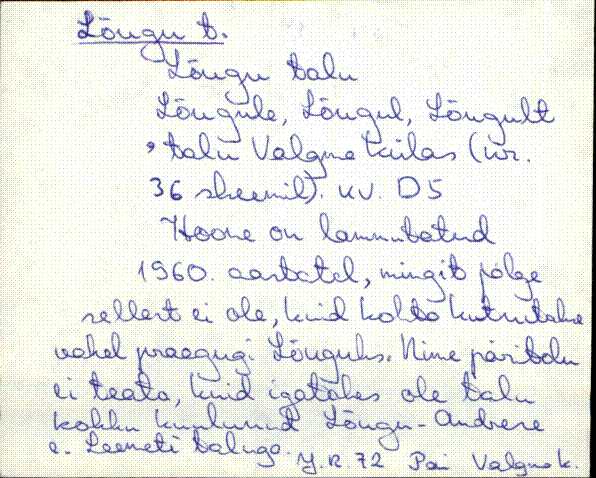 Lõugu t.
Lõugu talu
Lõugule, Lõugul, Lõugult
, talu Valgma külas (nr.
36 skeemil). KV. D5
Hoone on lammutatud
1960. aastatel, mingit jälge
sellest ei ole, kuid kohta kutsutakse
vahel praegugi Lõuguks. Nime päritolu
ei teata, kuid igatahes ole talu
kokku kuulunud Lõugu-Andrese
e. Leemeti taluga.
72 Pai Valgma k.